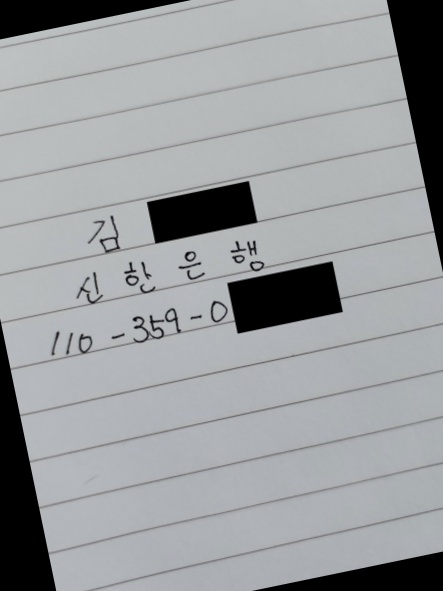 김
신한은행
110-359-0